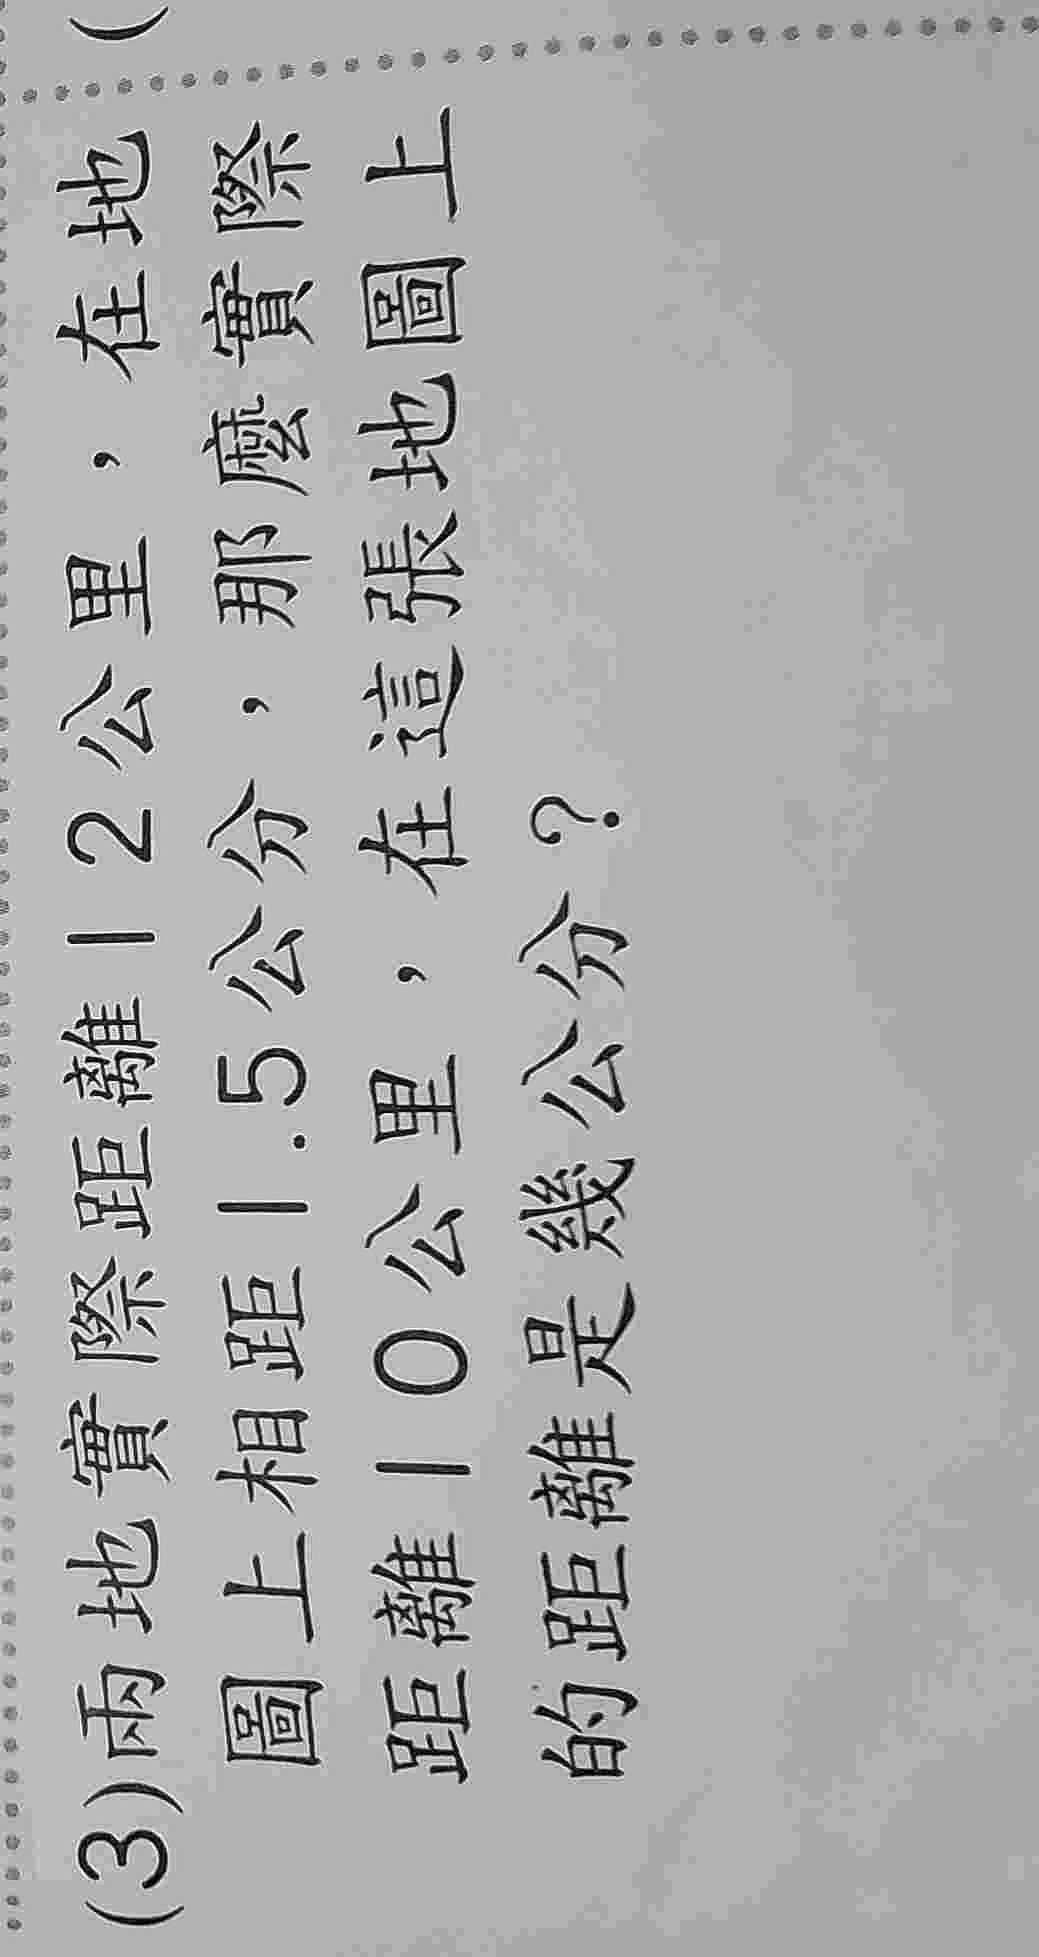 (3)兩地實際距離12公里，在地
圖上相距1.5公分，那麼實際
距離10公里，在這張地圖上
的距離是幾公分？
(